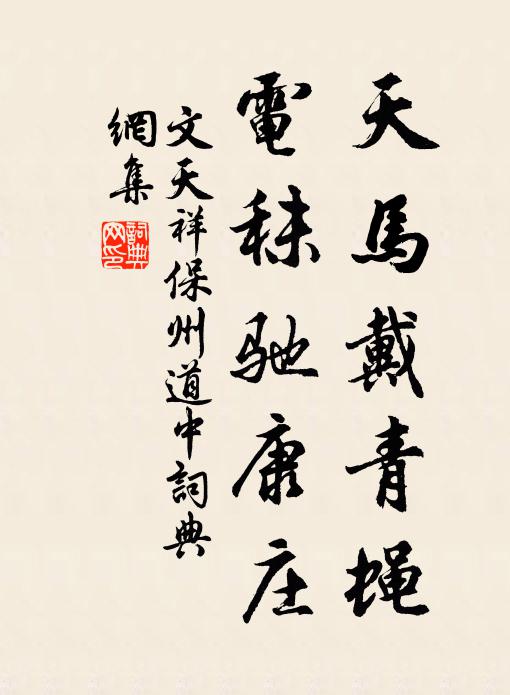 天馬戴青蝇
電秣驰康庄
文天祥保州道中詞典
網集
詞典网印